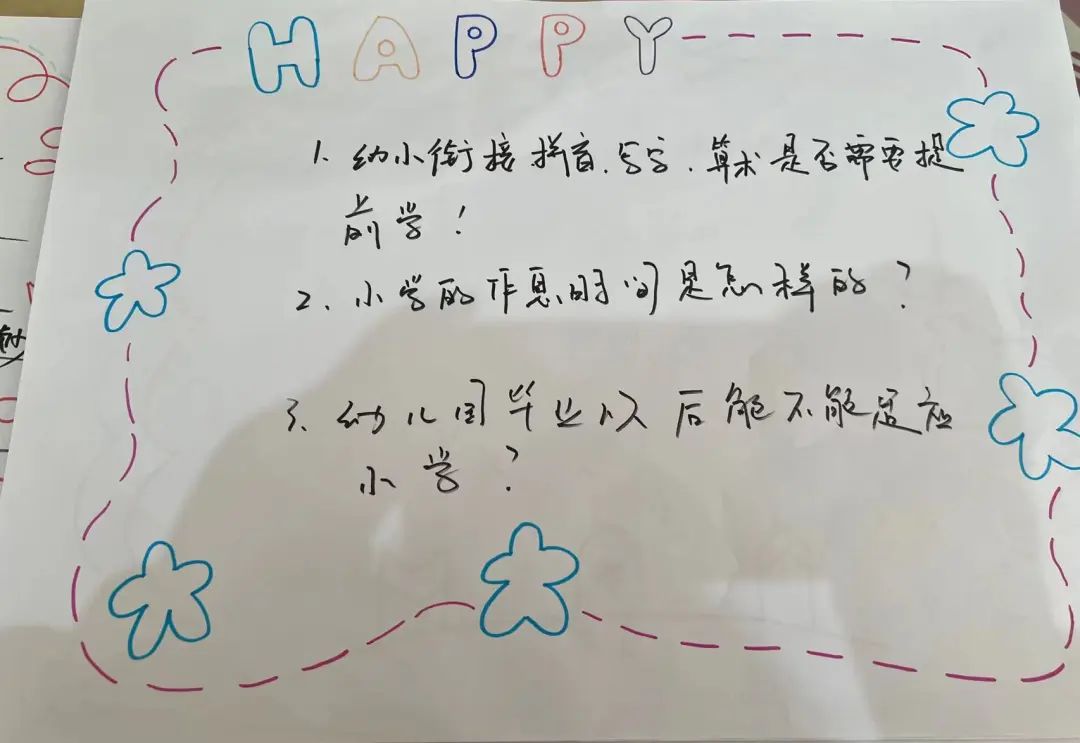 HAPPY
1. 幼小衔接拼音、写字、算术是否需要提
前学！
2、小学的作息时间是怎样的？
3、幼儿园毕业以后能不能适应
小学？